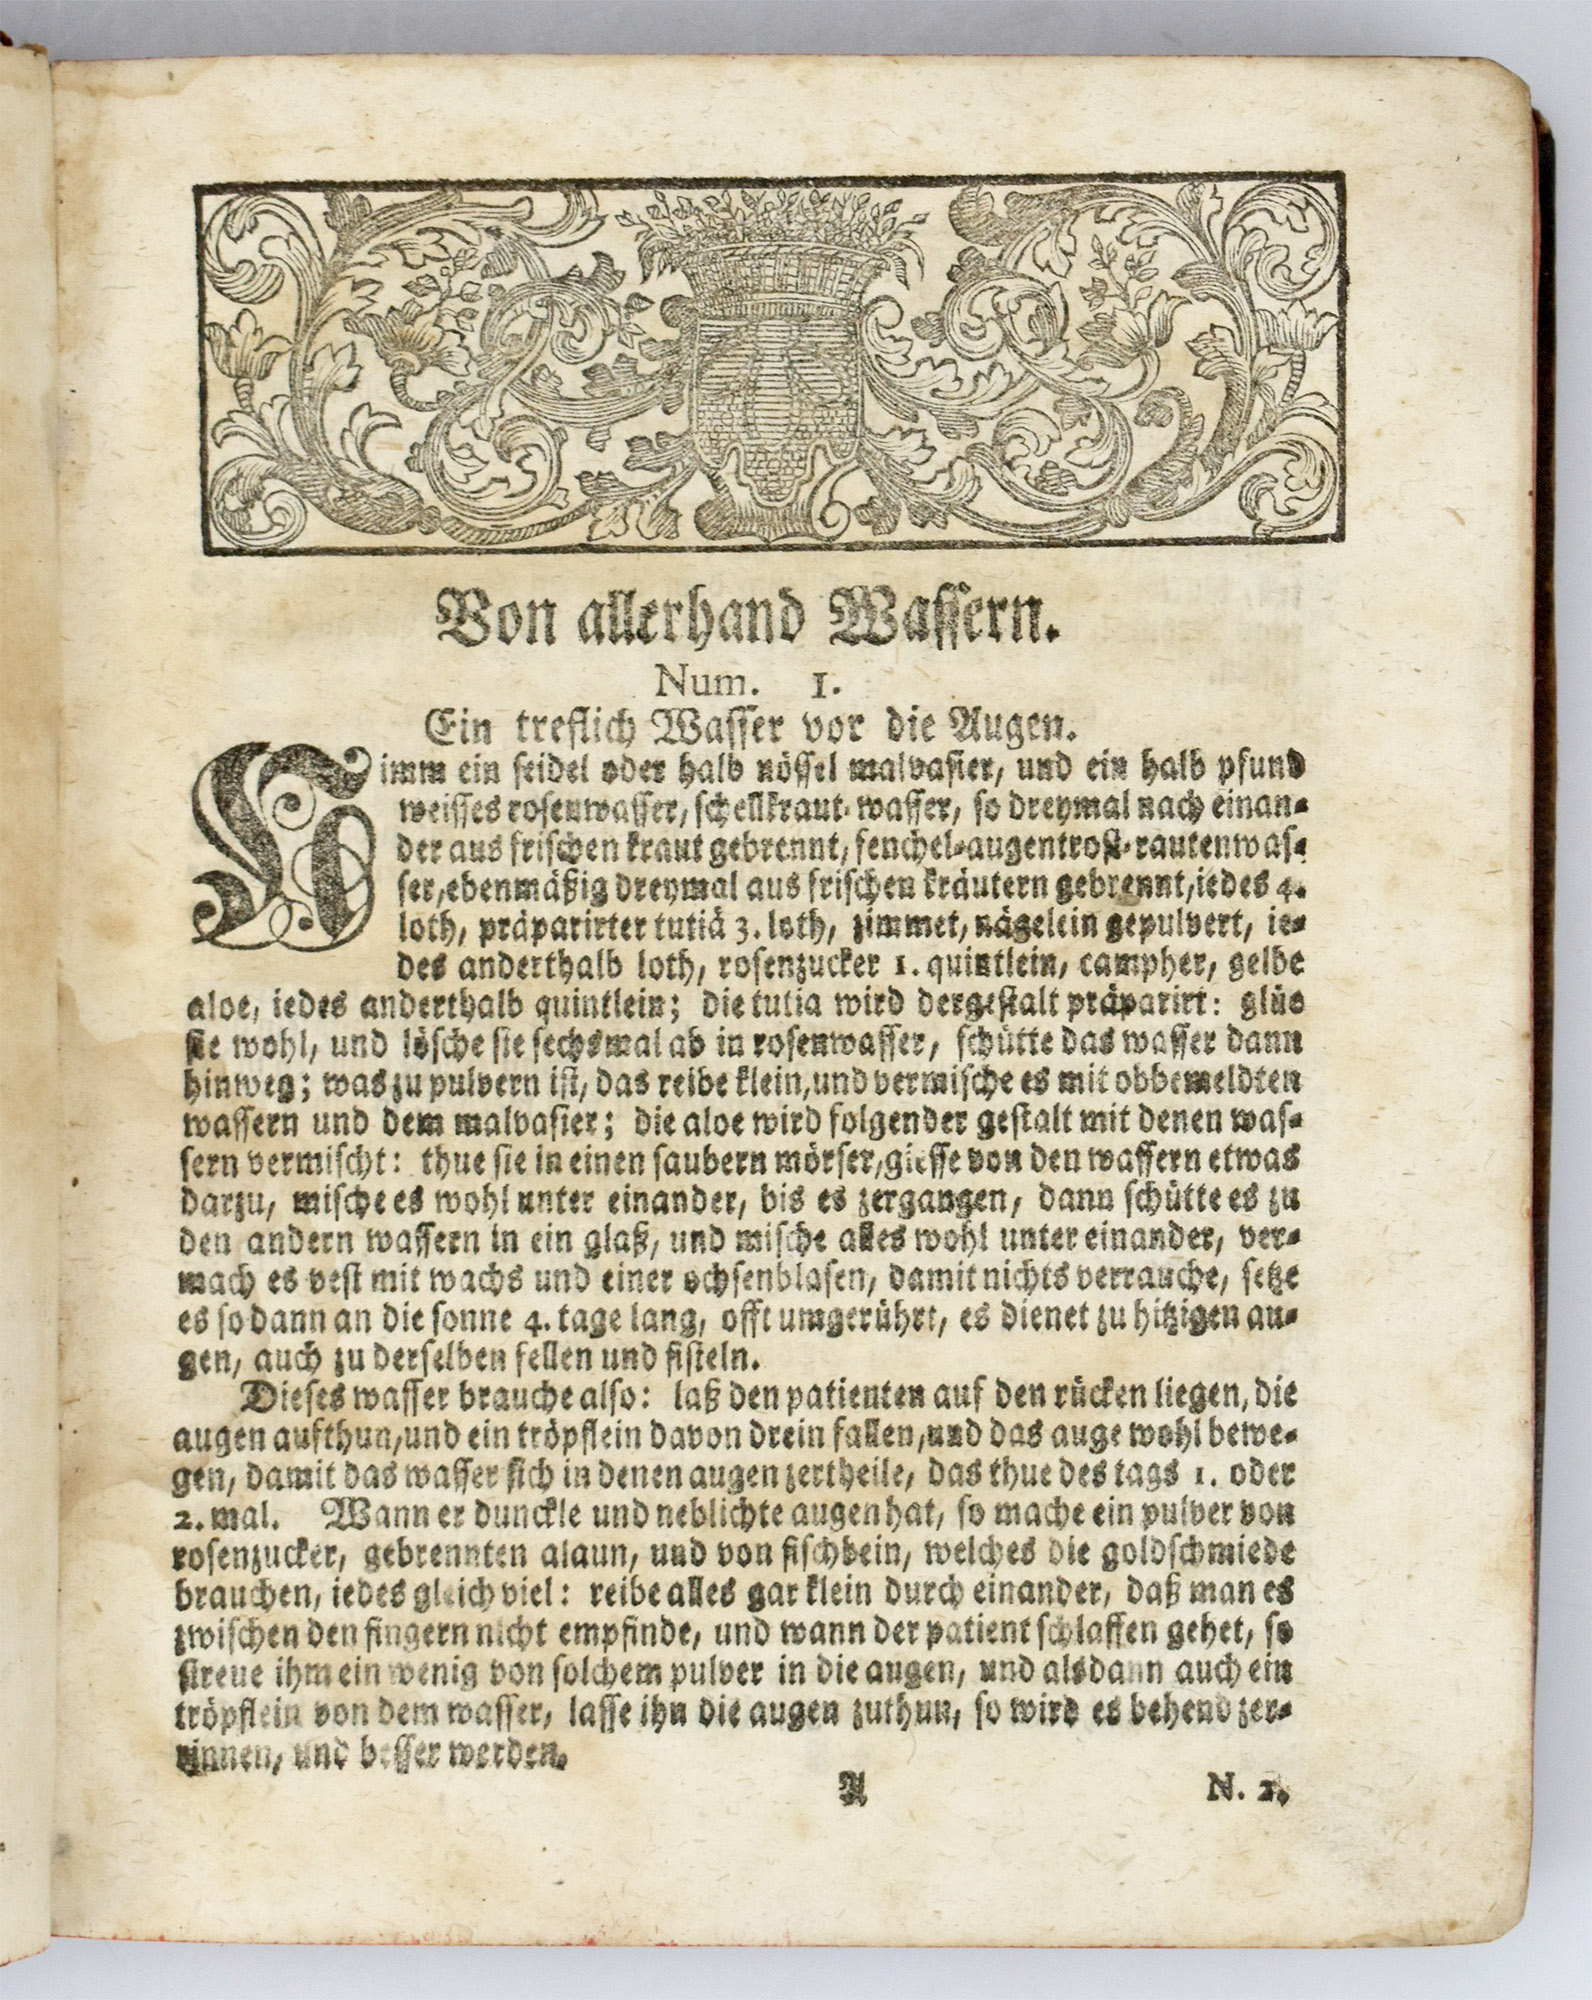 Von allerhand Wassern.
Num. 1.
Ein treflich Wasser vor die Augen.
Nimm ein seidel oder halb nössel malvasier, und ein halb pfund
weisses rosenwasser, schellkraut-wasser, so dreymal nach einan-
der aus frischen kraut gebrennt, fenchel-augentrost-rautenwas-
ser, ebenmäßig dreymal aus frischen kräutern gebrennt, iedes 4.
loth, präparirter tutiä 3. loth, zimmet, nägelein gepulvert, ie-
des anderthalb loth, rosenzucker 1. quintlein, campher, gelbe
aloe, iedes anderthalb quintlein; die tutia wird dergestalt präparirt: glüe
sie wohl, und lösche sie sechsmal ab in rosenwasser, schütte das wasser dann
hinweg; was zu pulvern ist, das reibe klein, und vermische es mit obbemeldten
wassern und dem malvasier; die aloe wird folgender gestalt mit denen was-
sern vermischt: thue sie in einen saubern mörser, giesse von den wassern etwas
darzu, mische es wohl unter einander, bis es zergangen, dann schütte es zu
den andern wassern in ein glaß, und mische alles wohl unter einander, ver-
mach es vest mit wachs und einer ochsenblasen, damit nichts verrauche, setze
es so dann an die sonne 4. tage lang, offt umgerührt, es dienet zu hitzigen au-
gen, auch zu derselben fellen und fisteln.
Dieses wasser brauche also: laß den patienten auf den rücken liegen, die
augen aufthun, und ein tröpflein davon drein fallen, und das auge wohl bewe-
gen, damit das wasser sich in denen augen zertheile, das thue des tags 1. oder
2. mal. Wann er dunckle und neblichte augen hat, so mache ein pulver von
rosenzucker, gebrennten alaun, und von fischbein, welches die goldschmiede
brauchen, iedes gleich viel: reibe alles gar klein durch einander, daß man es
zwischen den fingern nicht empfinde, und wann der patient schlaffen gehet, so
streue ihm ein wenig von solchem pulver in die augen, und alsdann auch ein
tröpflein von dem wasser, lasse ihn die augen zuthun, so wird es behend zer-
rinnen, und besser werden.
A N. 2.